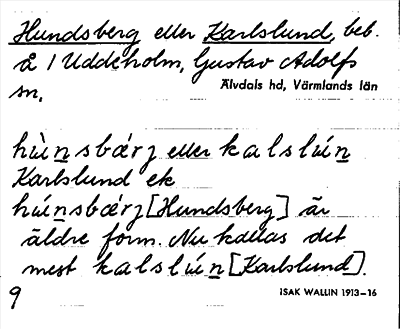 Hundsberg eller Karlslund, beb.
å 1 Uddeholm, Gustav Adolfs
sn.
Älvdals hd, Värmlands län
hùnsbærj eller kalslún
Karlslund ek
húnsbærj [Hundsberg] är
äldre form. Nu kallas det
mest kalslún [Karlslund].
9
ISAK WALLIN 1913–16